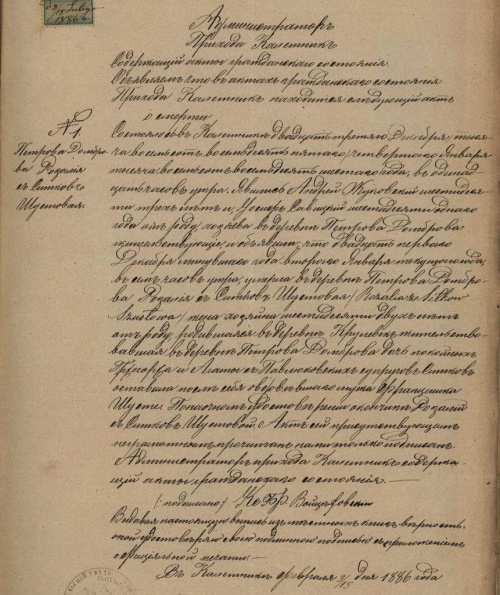 1886
Администраторъ
Прихода Калетникъ
Содержащій акты гражданскаго состоянія.
Объявляемъ что въ актахъ гражданскаго состоянія
Прихода Калетникъ находится слѣдующій актъ
о смерти
№ 1.
Петрова Домбро
ва Розалія
съ Ситковъ
Шустовая.
Состоялось въ Калетникъ двадцать третьяго Декабря, тыся
ча восемьсотъ восемьдесятъ пятаго / четвертаго Января
тысяча восемьсотъ восемьдесятъ шестаго года, въ одинад
цать часовъ утра. Явились Андрей Жуковскій шестидеся
ти трехъ лѣтъ и, Іосифъ Савицкій шестидесяти одного
года отъ роду, хозяева въ деревнѣ Петрова Домброва
жительствующіе, и объявили, что двадцать перваго
Декабря минувшаго года / втораго Января текущаго года,
въ семь часовъ утра, умерла въ деревнѣ Петрова Домбро
ва Розалія съ Ситковъ Шустовая / Rozalia z Sitkow
Szustowa / жена хозяина шестидесяти двухъ лѣтъ
отъ роду, родившаяся въ деревнѣ жительство
вавшая въ деревнѣ Петрова Домброва дочь покойныхъ
и Агаты съ Павлюковскихъ супруговъ Ситковъ
оставила послѣ себя овдовѣвшаго мужа Францишка
Шуста. По настоящемъ удостовѣреніи о кончинѣ Розаліи
съ Ситковъ Шустовой, Актъ сей присутствующимъ
неграмотнымъ прочитанъ нами только подписанъ
Администраторъ прихода Калетникъ содержа
щій акты гражданскаго состоянія.
(подписано) Кс. Фр. Войцѣховскій
Выдавая настоящую выпись изъ мѣстныхъ книгъ вѣрность
оной удостовѣряю своею подписью съ приложеніемъ
официальной печати.
Въ Калетникъ февраля 3/15 дня 1886 года